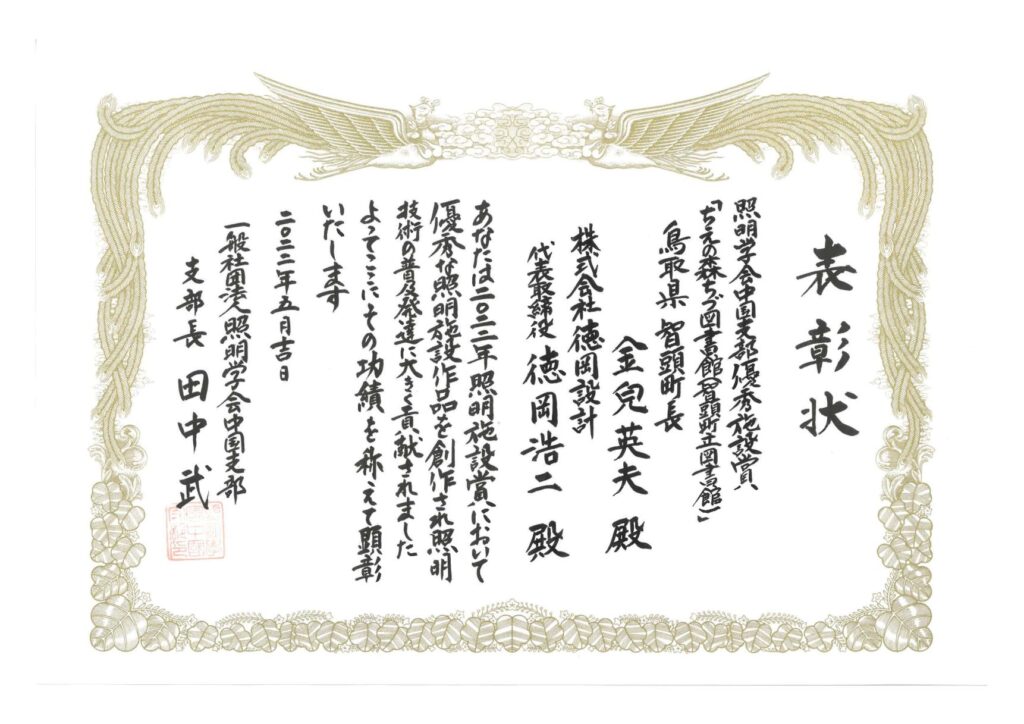 表彰状
照明学会中国支部優秀施設賞
「ちえの森ちづ図書館(智頭町立図書館)」
鳥取県 智頭町長
金兒英夫 殿
株式会社徳岡設計
代表取締役 徳岡浩二 殿
あなたは二〇二二年照明施設賞において
優秀な照明施設作品を創作され照明
技術の普及発達に大きく貢献されました
よってここにその功績を称えて顕彰
いたします
二〇二二年五月吉日
一般社団法人照明学会中国支部
支部長 田中武